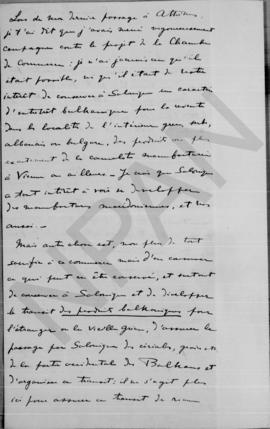 Lors de mon dernier passage à Athènes,
je t'ai dit que j'avais mené vigoureusement
campagne contre le projet de la Chambre
de Commerce : je n'ai jamais cru qu'il
était possible, ni qu'il était de notre
intérêt de conserver à Salonique un caractère
d'entrepôt balkanique pour la revente
dans les localités de l'intérieur grec, serbe,
albanais ou bulgare, des produits ou plus
exactement de la camelote manufacturée
à Vienne ou ailleurs. Je crois que Salonique
a tout intérêt à voir se développer
des manufactures macédoniennes, et nous
aussi. —
Mais autre chose est, non plus de tout
sacrifier à ce commerce mais d'en conserver
ce qui peut en être conservé, et surtout
de conserver à Salonique et de développer
le transit des produits balkaniques pour
l'étranger ou la vieille Grèce, d'assurer le
passage par Salonique des céréales,
de la partie occidentale des Balkans et
d'organiser ce transit : il ne s'agit plus
ici pour assurer ce transit de
NPAN